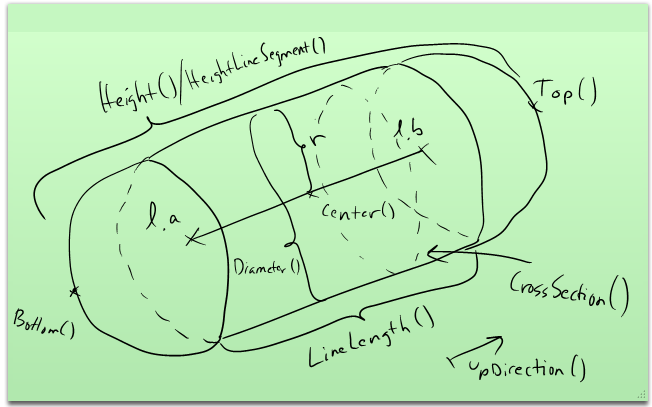 Height()/HeightLineSegment()
Top()
r
l.b
l.a
Center()
Diameter()
CrossSection()
Bottom()
LineLength()
upDirection()